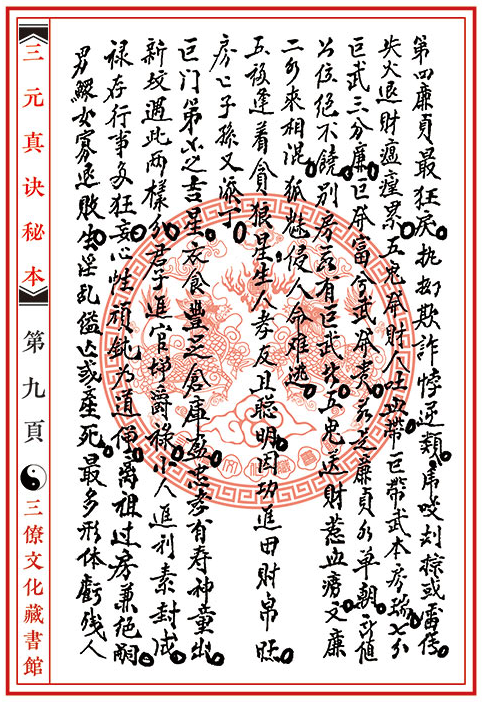 第四廉貞最狂戾执拗欺詐悖逆類虎咬刦掠或雷传
失火退財瘟㾮累五鬼芬財人吐血带巨帶武本房瑞七分
巨武三分廉巨芬富兮武芬貴若是廉貞水單朝所值
公位绝不饒别房若有巨武出五鬼送財惹血癆又廉
二水來相混狐魅侵人命难逃
五福逢着貪狼星生人孝友且聪明因功進田財帛旺
房亡子孫又添丁
巨门第六之吉星衣食豐足倉庫盈忠孝有寿神童出
新坟遇此两樣分君子進官增爵禄小人進利素封成
禄存行事多狂妄心性頑鈍为道僧離祖过房兼绝嗣
男鰥女寡退敗生淫乱傷亡或產死最多形体虧残人
三元真诀秘本
第九頁
三僚文化藏書館